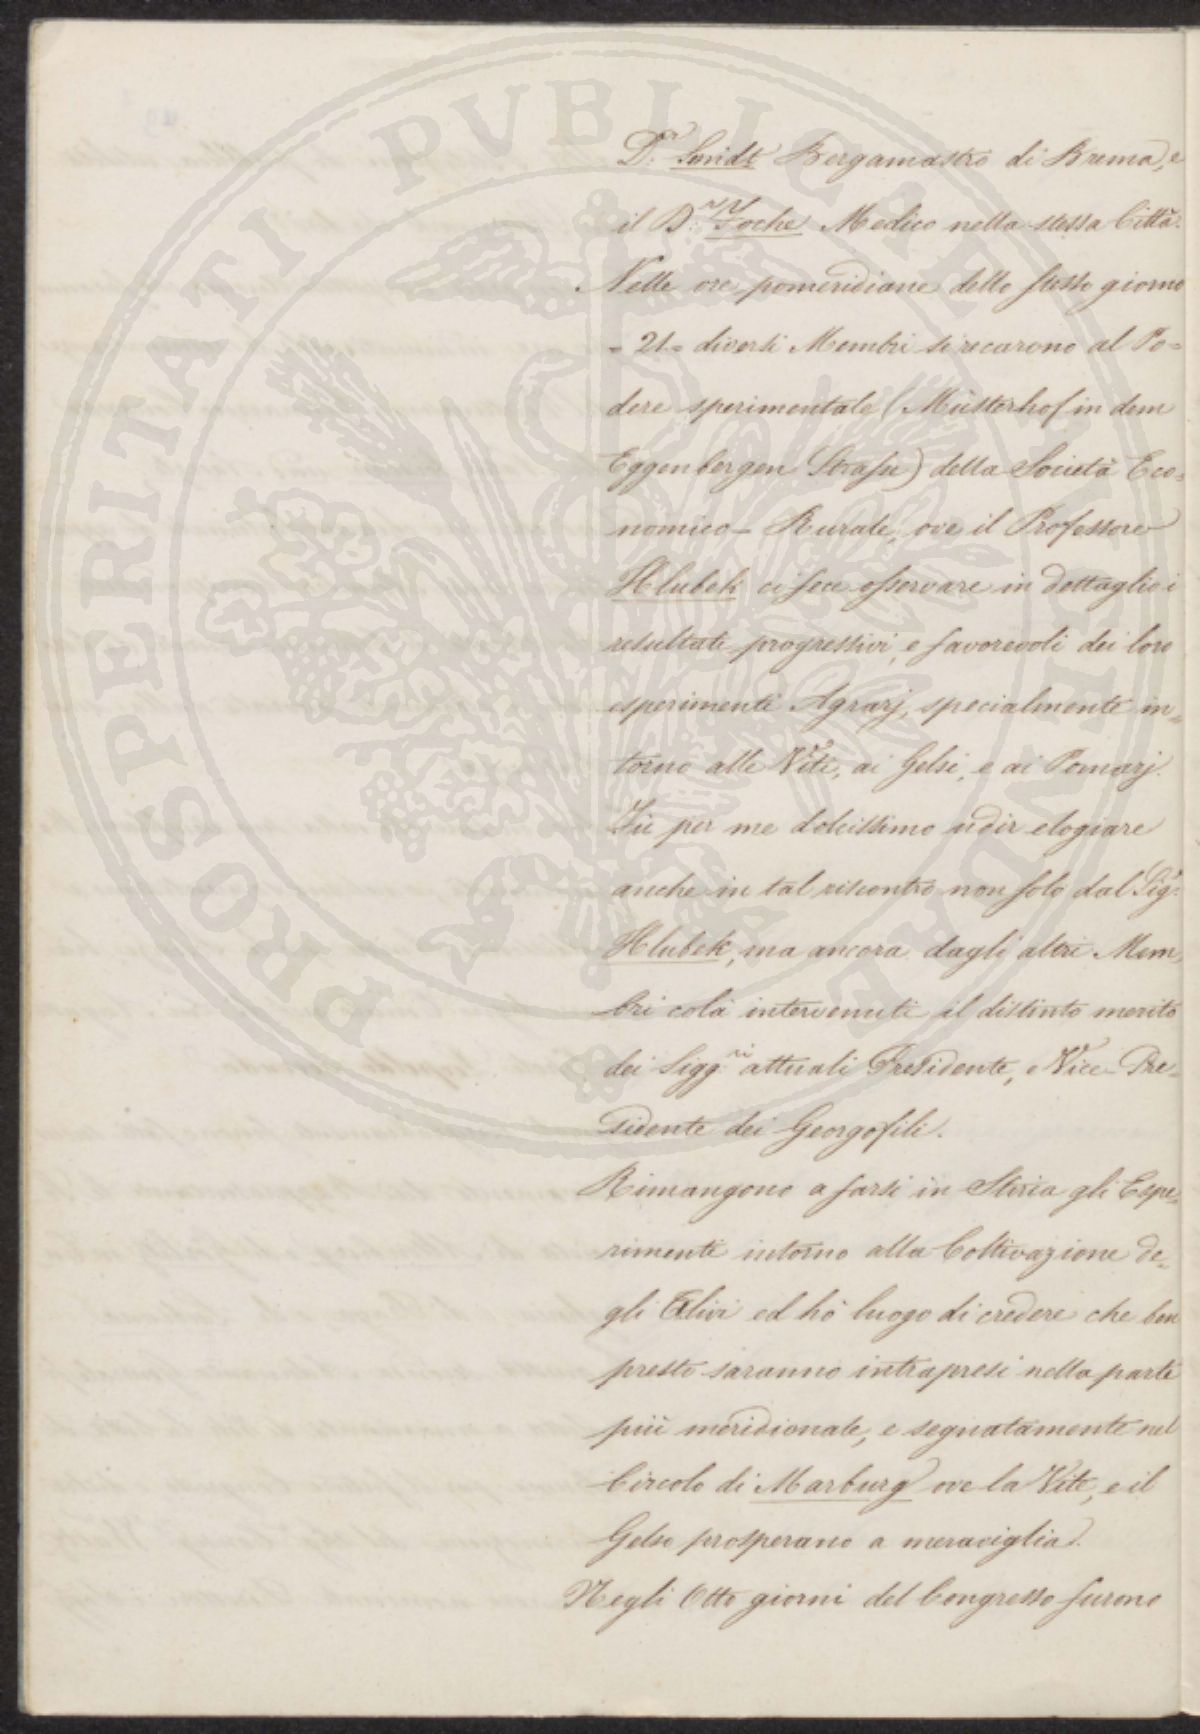 D.r Smidt Bergamastro di Brema, e
il D.r Foche Medico nella stessa Città.
Nelle ore pomeridiane dello stesso giorno
= 21 = diversi Membri si recarono al Po=
dere sperimentale (Müsterhof in dem
Eggenbergen Strasse) della Società Eco=
nomico - Rurale, ove il Professore
Hlubek ci fece osservare in dettaglio i
resultati progressivi, e favorevoli dei loro
esperimenti Agrarj, specialmente in=
torno alle Viti, ai Gelsi, e ai Pomarj.
Fù per me dolcissimo udir elogiare
anche in tal riscontro non solo dal Sig.r
Hlubek, ma ancora dagli altri Mem
bri colà intervenuti il distinto merito
dei Sigg.ri attuali Presidente, e Vice-Pre=
sidente dei Georgofili.
Rimangono a farsi in Stiria gli Espe=
rimenti intorno alla Coltivazione de=
gli Olivi ed hò luogo di credere che ben
presto saranno intrapresi nella parte
più meridionale, e segnatamente nel
Circolo di Marburg ove la Vite, e il
Gelso prosperano a meraviglia.
Negli Otto giorni del Congresso furono
PROSPERITATI PUBLICAE AUGENDAE